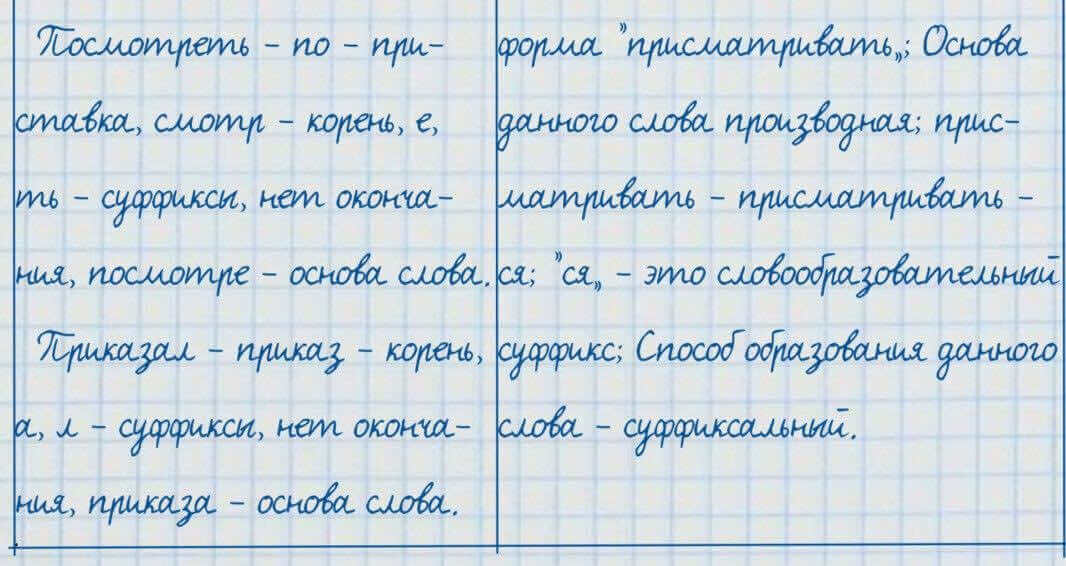 Посмотреть – по – при-
ставка, смотр – корень, е,
ть – суффиксы, нет оконча-
ния, посмотре – основа слова.
Приказал – приказ – корень,
а, л – суффиксы, нет оконча-
ния, приказа – основа слова.
форма "присматривать„; Основа
данного слова производная; прис-
матривать – присматривать –
ся; "ся„ – это словообразовательный
суффикс; Способ образования данного
слова – суффиксальный.